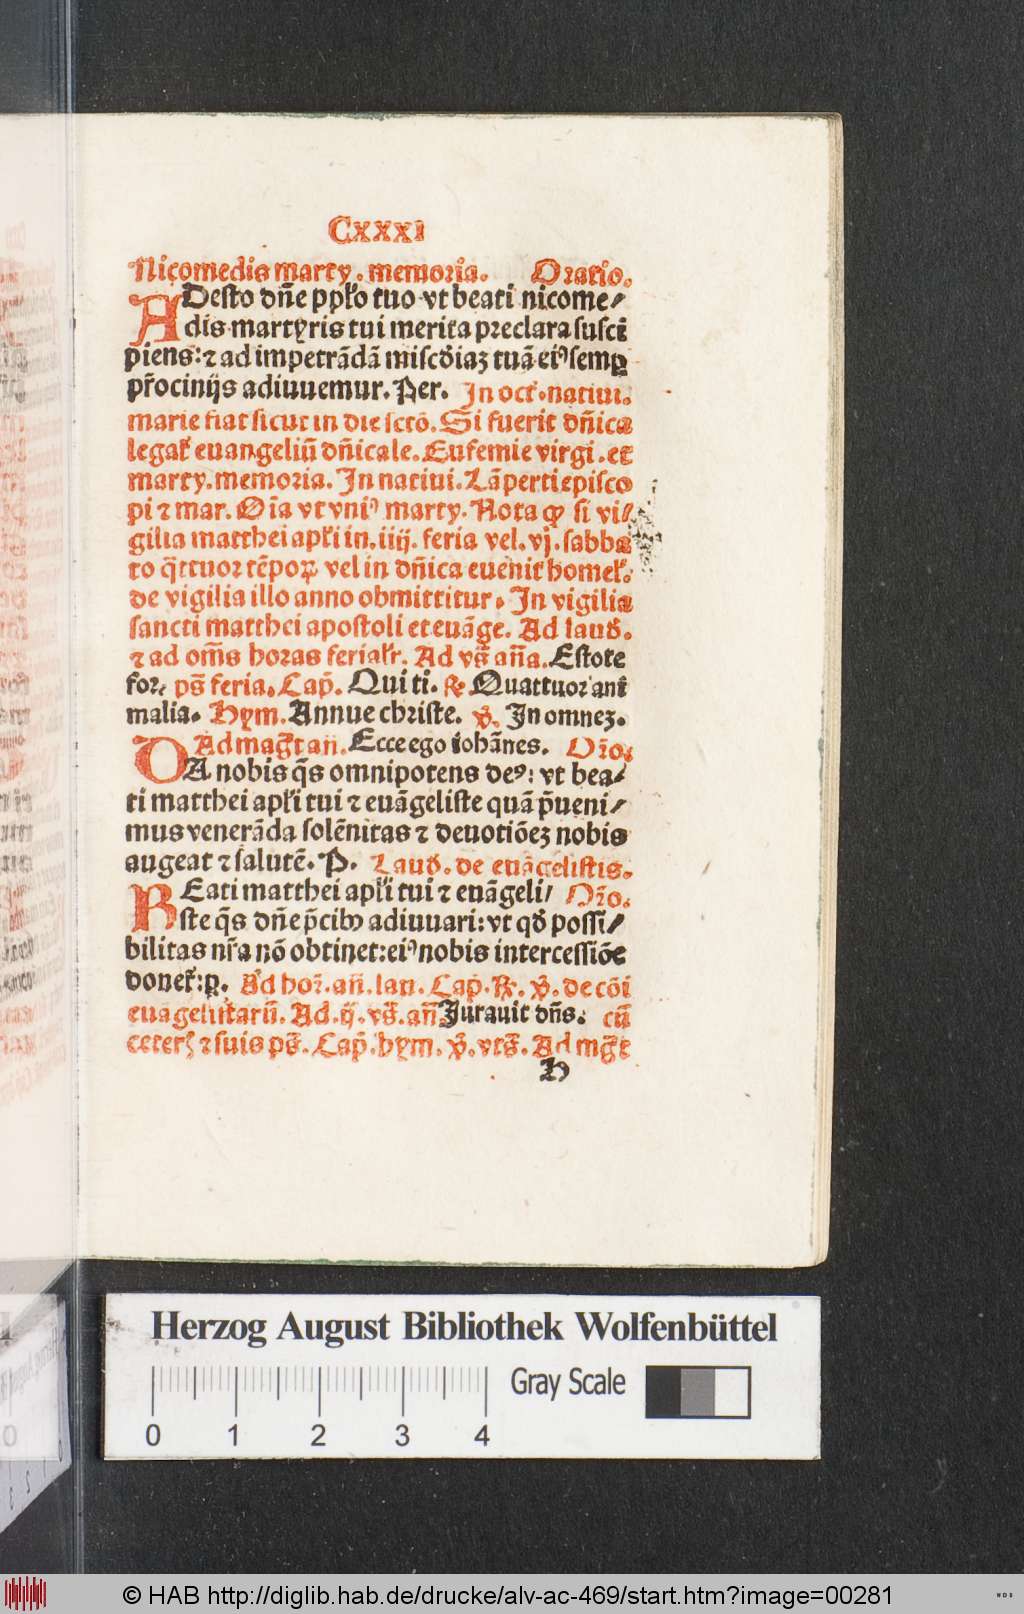 Cxxxi
Nicomedis marty. memoria. Oratio.
ADesto dñe ppl̄o tuo vt beati nicome/
dis martyris tui merita preclara suscī
piens: ⁊ ad impetrādā miscďiaz tuā eiꝰ semꝑ
pr̄ocinijs adiuuemur. Per. In oct̄. natiui.
marie fiat sicut in die sctō. Si fuerit dñica
legat̄ euangeliū dñicale. Eufemie virgi. et
marty. memoria. In natiui. Lāperti episco
pi ⁊ mar. Oīa vt vniꝰ marty. Nota ꝙ si vi/
gilia matthei apl̄i in. iiij. feria vel. vj. sabba
to q̄ttuor tēpoꝝ vel in dñica euenit homel̄.
de vigilia illo anno obmittitur. In vigilia
sancti matthei apostoli et euāge. Ad lauď.
⁊ ad om̄s horas ferial̄r. Ad vs̄ añа. Estote
for. ps̄ feria. Cap̄. Qui ti. ℟ Quattuor anī
malia. Hym. Annue christe. ℣. In omnez.
Ad maḡt an̄. Ecce ego iohānes. Or̄o.
DA nobis q̄s omnipotens deꝰ: vt bea/
ti matthei apl̄i tui ⁊ euāgeliste quā p̄ueni/
mus venerāda solēnitas ⁊ deuotiōez nobis
augeat ⁊ salutē. P. Lauď. de euāgelistis.
BEati matthei apl̄i tui ⁊ euāgeli/ Or̄o.
ste q̄s dñe p̄cibꝰ adiuuari: vt qď possi/
bilitas nr̄a nō obtinet: eiꝰ nobis intercessiōe
donet̄: ꝑ. Ad hor̄. an̄. lau. Cap̄. ℟. ℣. de cōi
euāgelistarū. Ad. ij. vs̄. an̄ Jurauit dñs. cū
ceteris ⁊ suis ps̄. Cap̄. hym. ℣. vts̄. Ad mḡt
H
Herzog August Bibliothek Wolfenbüttel
Gray Scale
0 1 2 3 4
© HAB http://diglib.hab.de/drucke/alv-ac-469/start.htm?image=00281